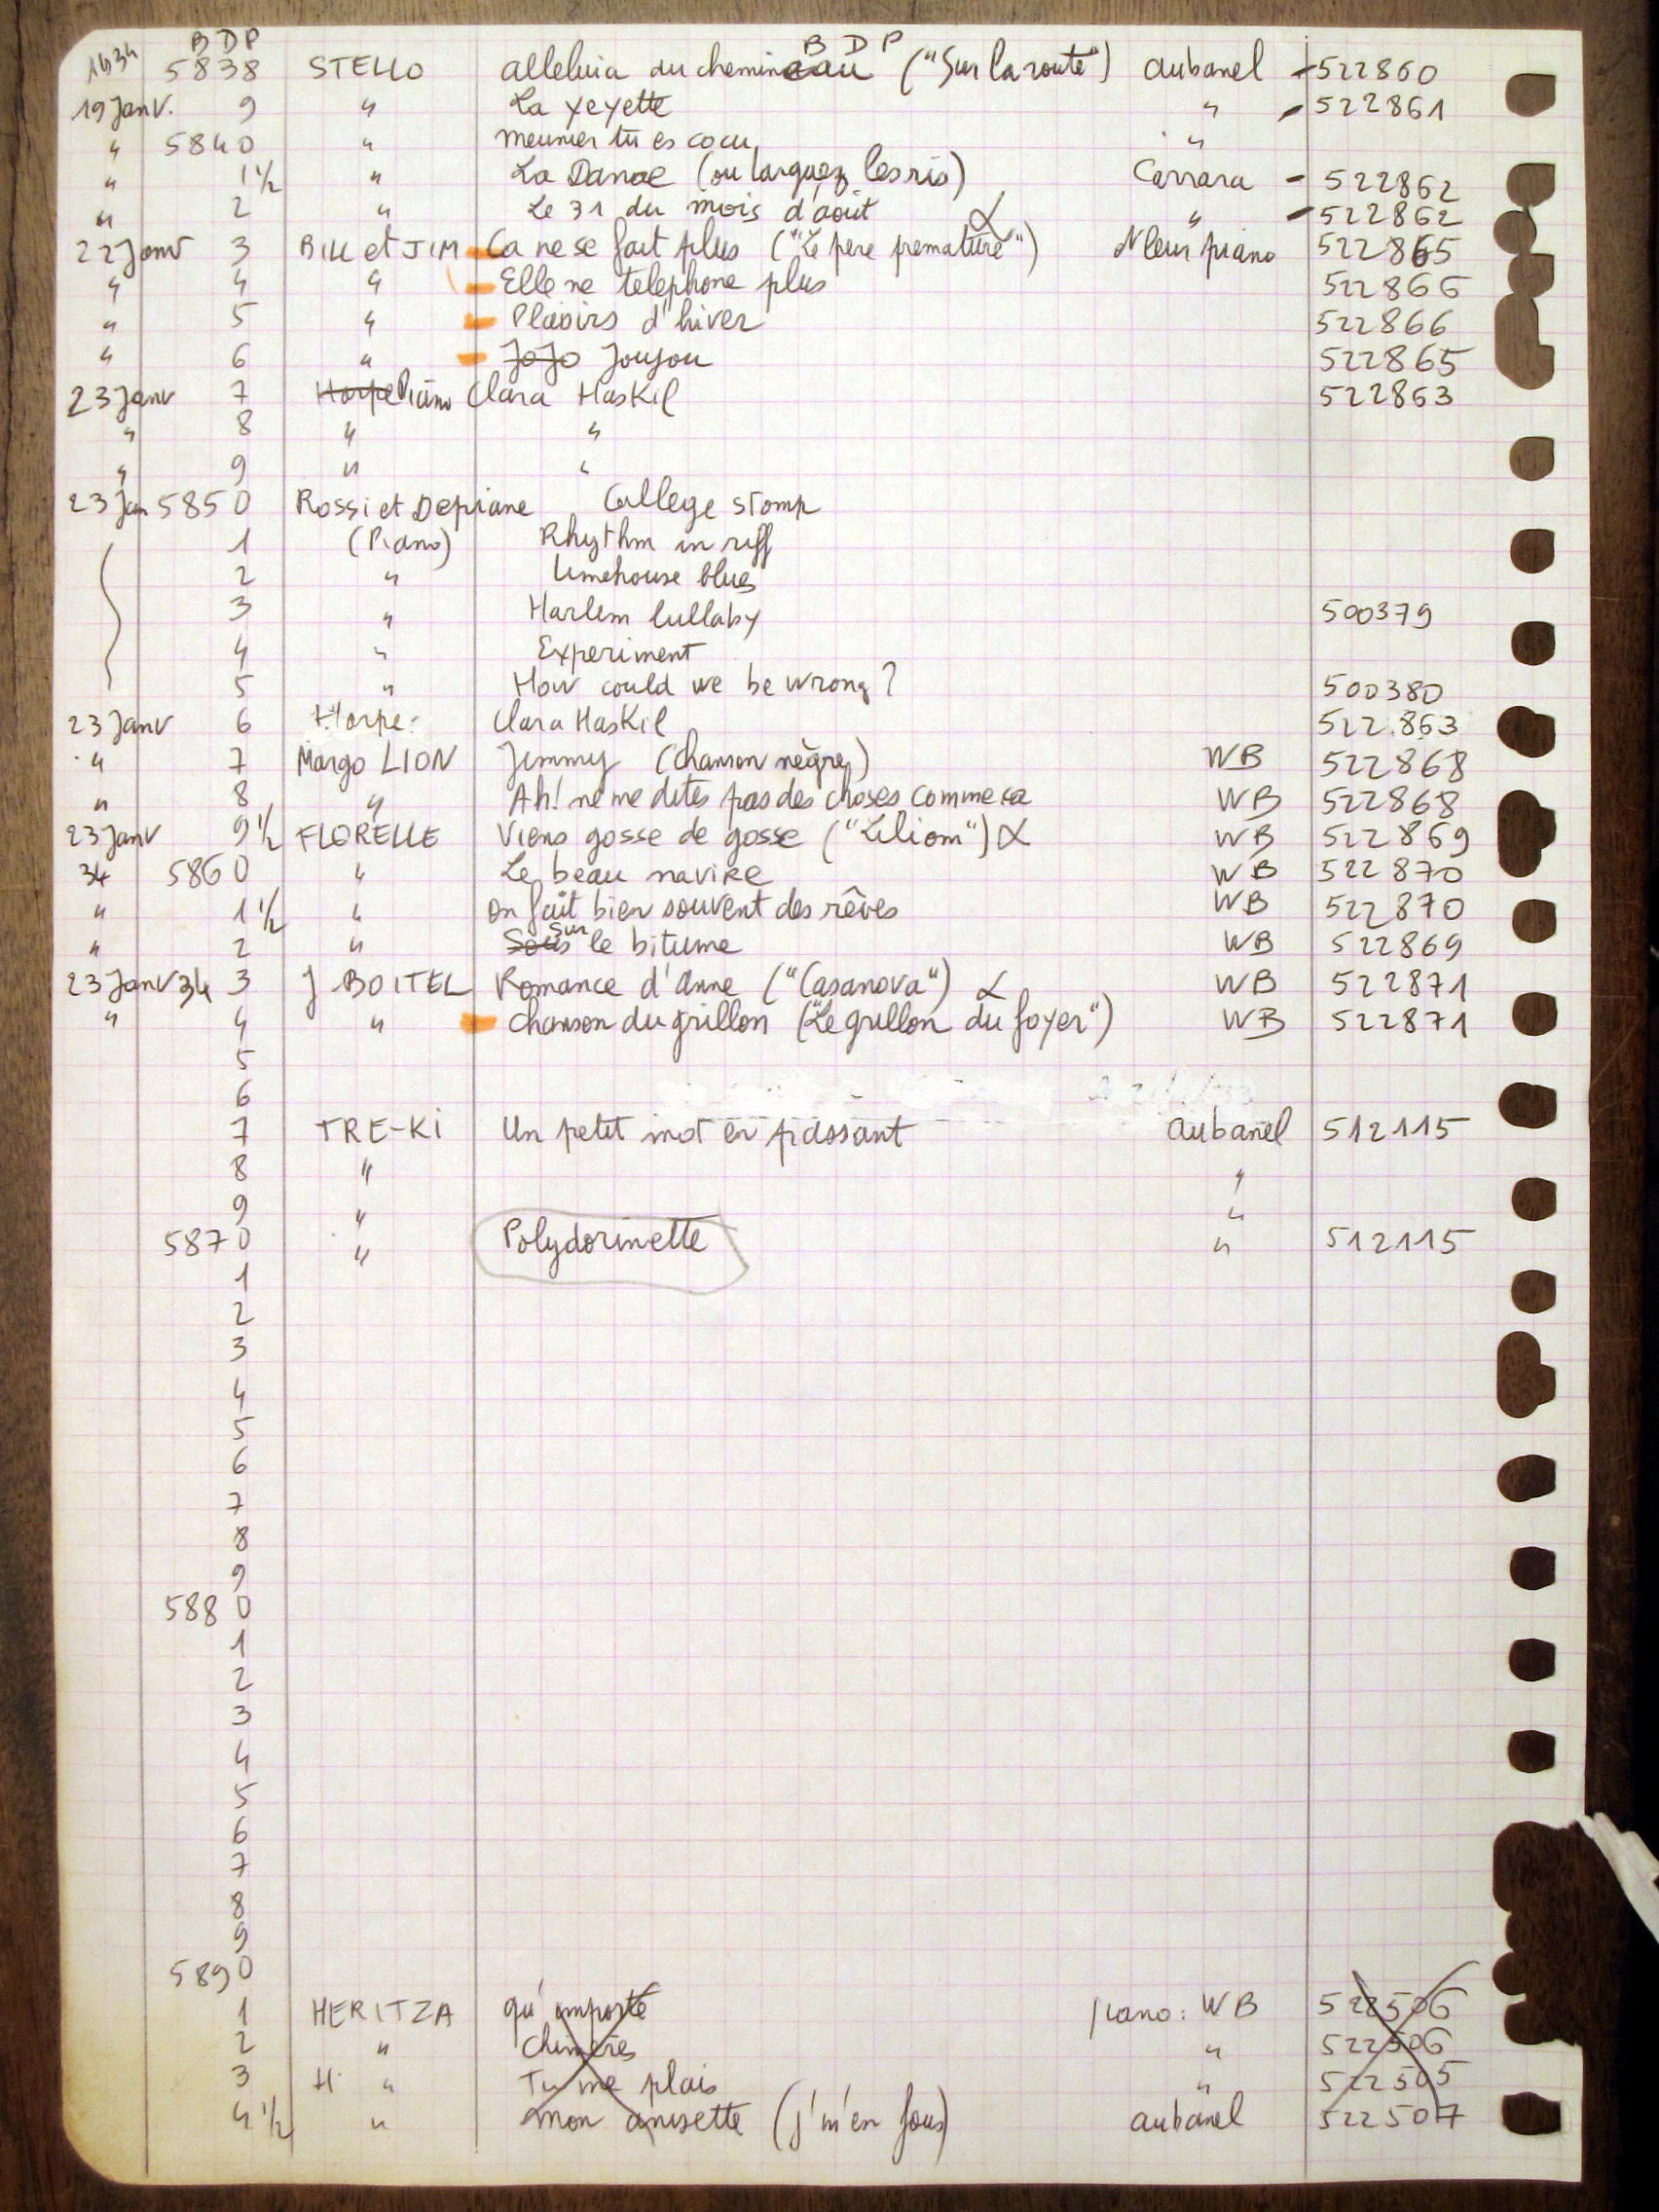 1934 BDP BDP
5838 STELLO Alleluia du chemineau ("Sur la route") Aubanel - 522860
19 Janv. 9 " La Yeyette " - 522861
" 5840 " Meunier tu es cocu "
" 1 1/2 " La Danae (ou larguez les ris) Carrara - 522862
" 2 " Le 31 du mois d'août α " - 522862
22 Janv 3 BILL et JIM Ca ne se fait plus ("Le pere premature") Nleur piano 522865
" 4 " Elle ne telephone plus 522866
" 5 " Plaisirs d'hiver 522866
" 6 " JoJo Joujou 522865
23 Janv 7 Harpe Piano Clara Haskil 522863
" 8 " "
" 9 " "
23 Jan 5850 Rossi et Depiane College stomp
1 (Piano) Rhythm in riff
2 " Limehouse blues
3 " Harlem lullaby 500379
4 " Experiment
5 " How could we be wrong? 500380
23 Janv 6 Harpe: Clara Haskil 522.863
" 7 Margo LION Jimmy (chanson nègre) WB 522868
" 8 " Ah! ne me dites pas des choses comme ca WB 522868
23 Janv 9 1/2 FLORELLE Viens gosse de gosse ("Liliom") α WB 522869
34 5860 " Le beau navire WB 522870
" 1 1/2 " On fait bien souvent des rêves WB 522870
" 2 " Sous Sur le bitume WB 522869
23 Janv 34 3 J BOITEL Romance d'Anne ("Casanova") α WB 522871
" 4 " Chanson du grillon ("Le grillon du foyer") WB 522871
5
6
7 TRE-KI Un petit mot en passant Aubanel 512115
8 " "
9 " "
5870 " Polydorinette " 512115
1
2
3
4
5
6
7
8
9
5880
1
2
3
4
5
6
7
8
9
5890
1 HERITZA qu'importe piano: WB 522506
2 " Chimères " 522506
3 H " Tu me plais " 522505
4 1/2 " Mon anisette (j'm'en fous) Aubanel 522507